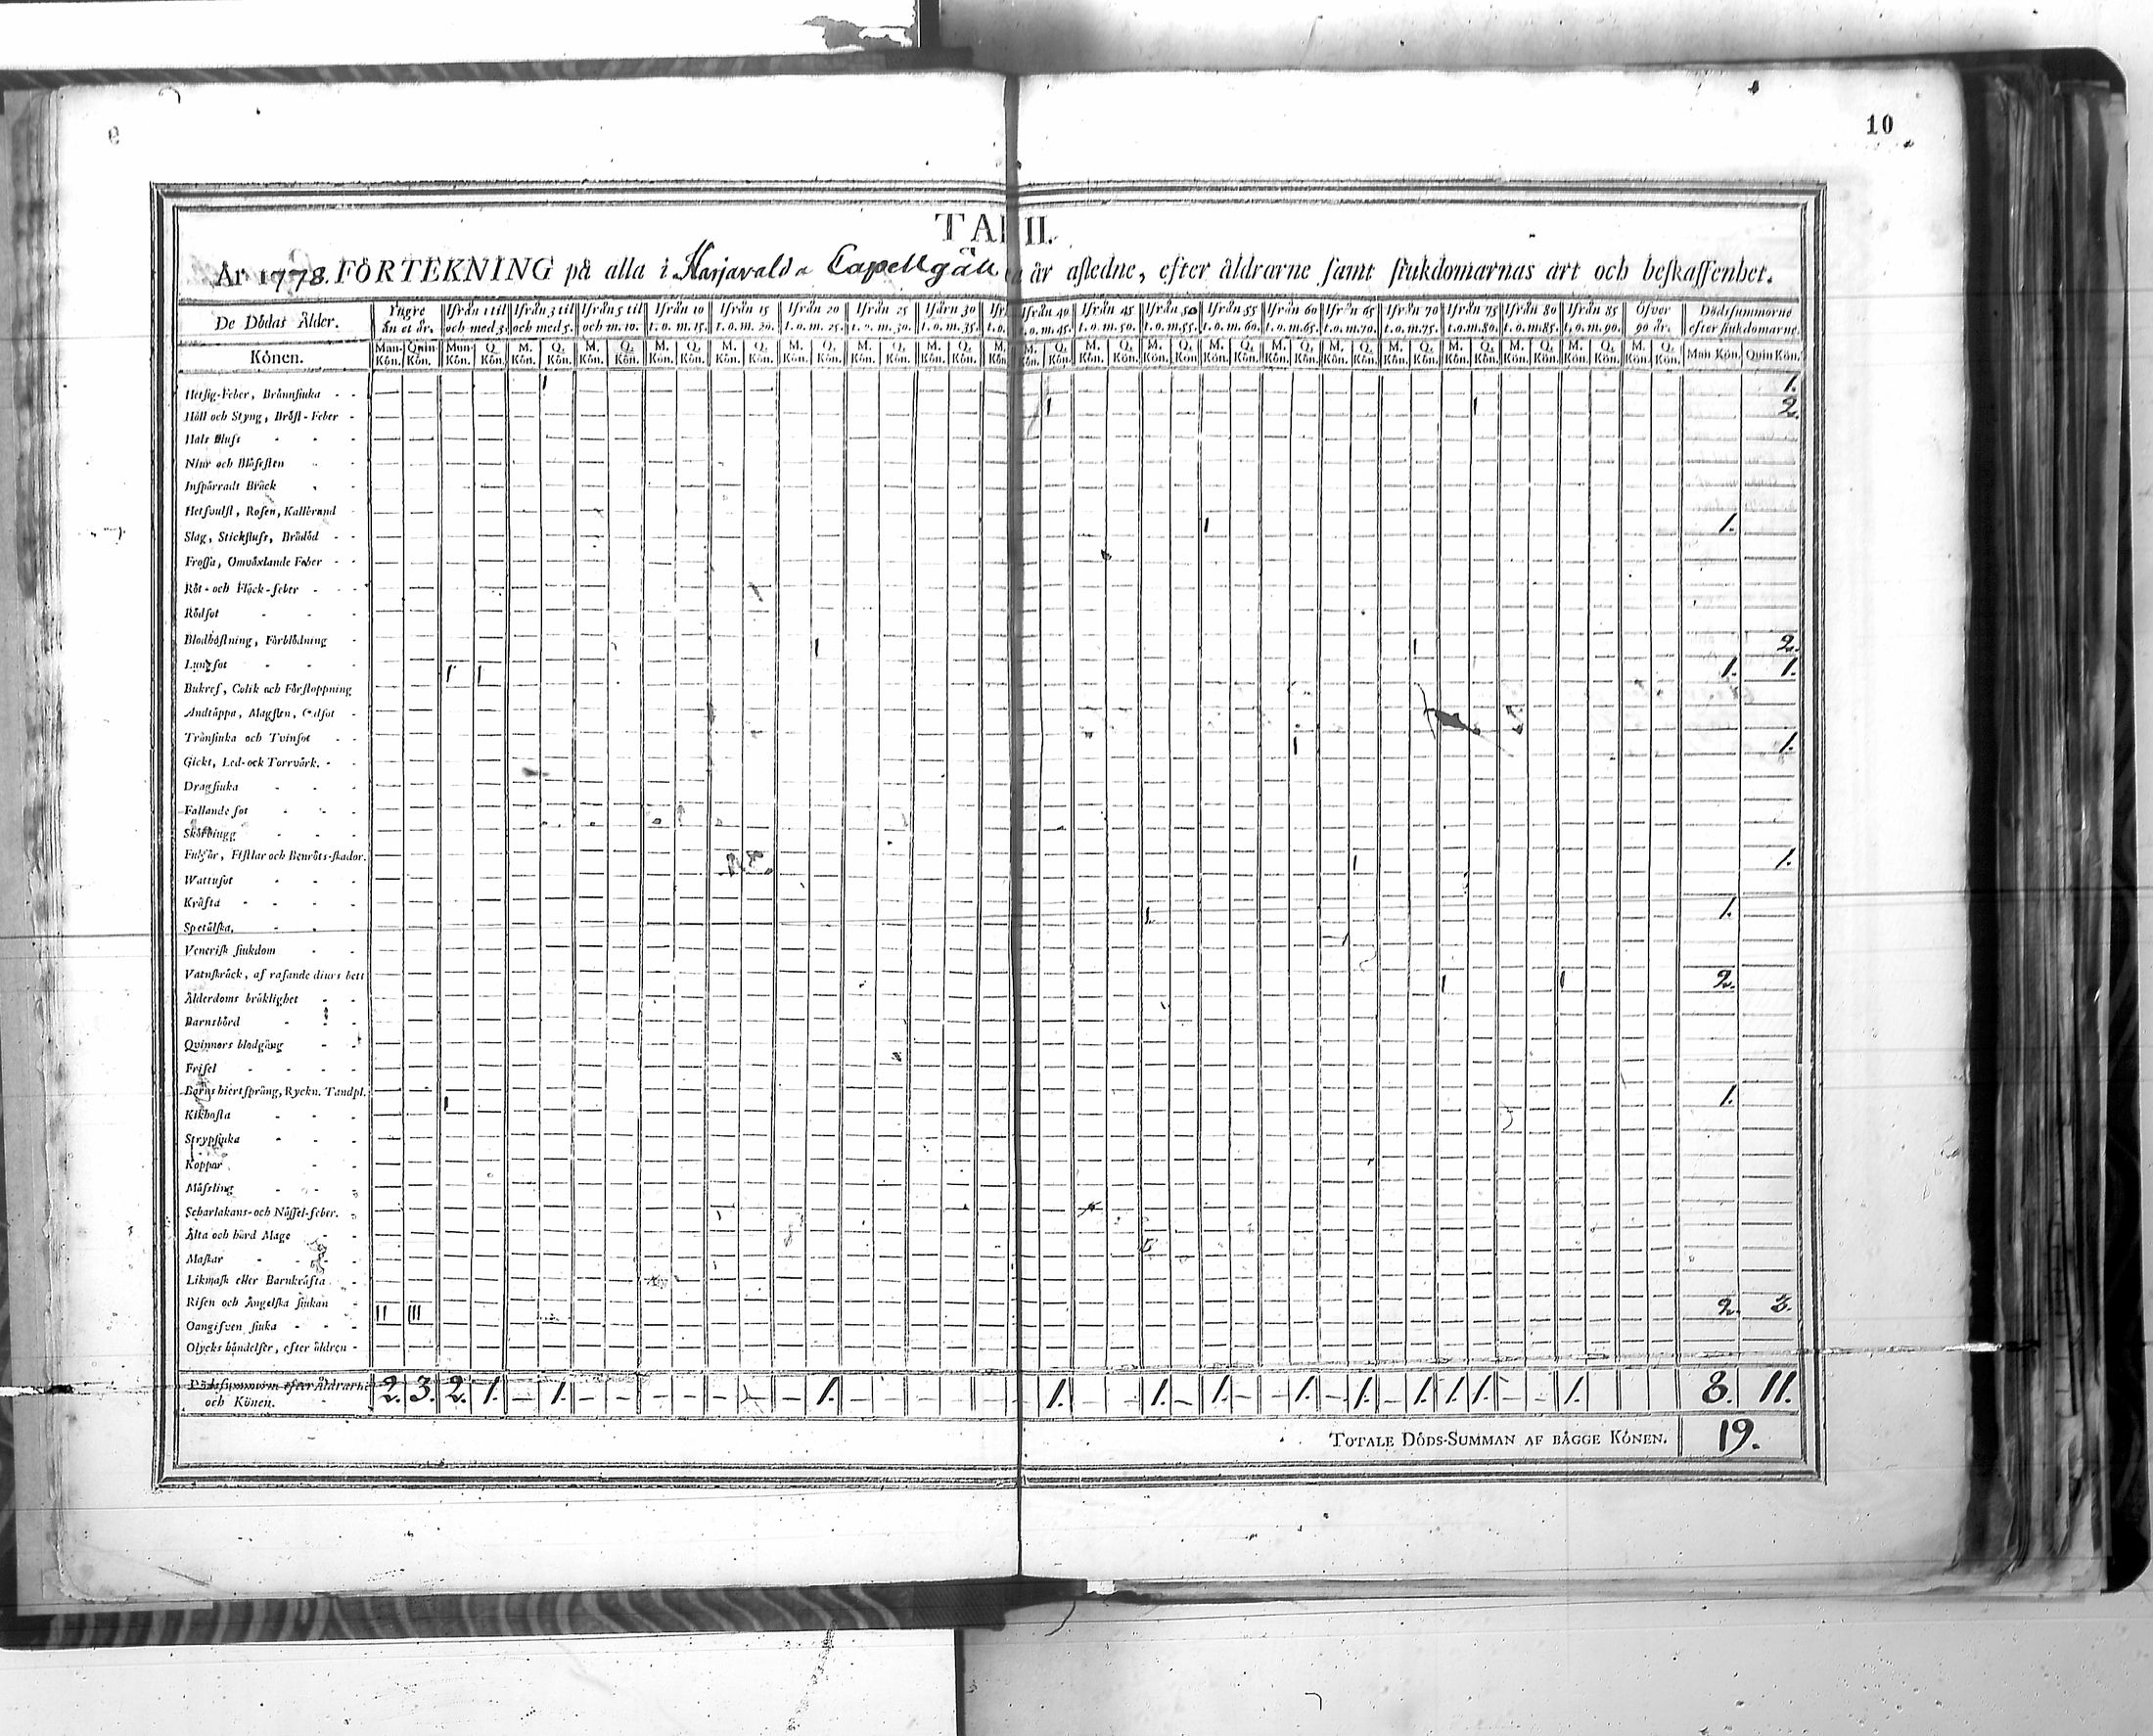 10
TAB II.
År 1778. FÖRTEKNING på alla i Harjavalda Capellgäll är afledne, efter åldrarne samt siukdomarnas art och beskaffenhet.
De Dödas Ålder. Yngre än et år. Ifrån 1 til och med 3. Ifrån 3 til och med 5. Ifrån 5 til och m. 10. Ifrån 10 t. o. m. 15. Ifrån 15 t. o. m. 20. Ifrån 20 t. o. m. 25. Ifrån 25 t. o. m. 30. Ifårn 30 t. o. m. 35. Ifrån 40 t. o. m. 45. Ifrån 45 t. o. m. 50. Ifrån 50 t. o. m. 55. Ifrån 55 t. o. m. 60. Ifrån 60 t. o. m. 65. Ifrån 65 t. o. m. 70. Ifrån 70 t. o. m. 75. Ifrån 75 t. o. m. 80. Ifrån 80 t. o. m. 85. Ifrån 85 t. o. m. 90. Öfver 90 år. Dödssummorne efter siukdomarne.
Könen. Man-Kön. Quin-Kön. Man-Kön. Q. Kön. M. Kön. Q. Kön. M. Kön. Q. Kön. M. Kön. Q. Kön. M. Kön. Q. Kön. M. Kön. Q. Kön. M. Kön. Q. Kön. M. Kön. Q. Kön. M. Kön. Q. Kön. M. Kön. Q. Kön. M. Kön. Q. Kön. M. Kön. Q. Kön. M. Kön. Q. Kön. M. Kön. Q. Kön. M. Kön. Q. Kön. M. Kön. Q. Kön. M. Kön. Q. Kön. M. Kön. Q. Kön. M. Kön. Q. Kön. Man Kön. Quin Kön.
Hetsig-Feber, Brännsiuka 1 1.
Håll och Styng, Bröst-Feber 1 1 2.
Hals Fluss
Niur och Blåsesten
Inspärradt Bråck
Hetsvulst, Rosen, Kallbrand
Slag, Stickfluss, Brådöd 1 1.
Frossa, Omväxlande Feber
Röt- och Fläck-feber
Rödsot
Blodhostning, Förblödning
Lungsot 1 1 2.
Bukref, Colik och Förstoppning 1 1 1. 1.
Andtäppa, Magsten, Gulsot
Trånsiuka och Tvinsot
Gickt, Led- ock Torrvärk. 1 1.
Dragsiuka
Fallande sot
Skörbiugg
Fulsår, Fistlar och Benröts-skador.
Wattusot 1 1.
Kräfta
Spetälska. 1. 1.
Venerisk siukdom
Vatnskräck, af rasande diurs bett
Ålderdoms bräklighet 1 1 2.
Barnsbörd
Qvinnors blodgång
Frisel
Barns hiertspräng, Ryckn. Tandpl.
Kikhosta 1 1.
Strypsiuka
Koppar
Mässling
Scharlakans- och Nässel-feber.
Älta och hård Mage
Maskar
Likmask eller Barnkräfta
Risen och Ängelska siukan
Oangifven siuka II III 2. 3.
Olycks händelser, efter åldren
Dödssummorna efter Åldrarne och Könen. 2. 3. 2. 1. 1. 1. 1. 1. 1. 1. 1. 1. 1. 1. 1. 8. 11.
TOTALE DÖDS-SUMMAN AF BÄGGE KÖNEN. 19.